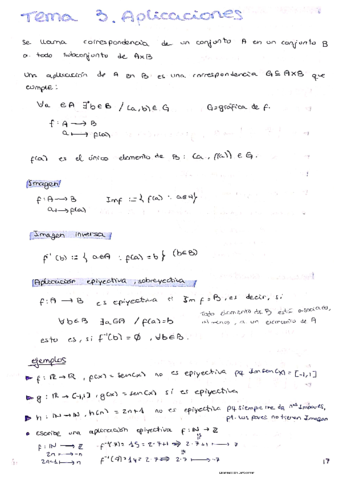 Tema 3. Aplicaciones
Se llama correspondencia de un conjunto A en un conjunto B
a todo subconjunto de A×B
Una aplicación de A en B es una correspondencia G⊆A×B que
cumple:
∀a ∈A ∃!b∈B / (a,b)∈G G≡gráfica de f.
f: A → B
a ↦ f(a)
f(a) es el único elemento de B : (a, f(a)) ∈ G.
Imagen
f: A → B Imf := { f(a) : a∈A}
a ↦ f(a)
Imagen inversa
f⁻¹(b) := { a∈A : f(a) = b } (b∈B)
Aplicación epiyectiva, sobreyectiva
f: A → B es epiyectiva si Im f = B, es decir, si
∀b∈B ∃a∈A / f(a)=b todo elemento de B está
un elemento de A
esto es, si f⁻¹(b) = ∅, ∀b∈B.
ejemplos
f: ℝ → ℝ, f(x) = sen(x) no es epiyectiva pq Im sen(x) = [-1,1]
g: ℝ → [-1,1], g(x) = sen(x) sí es epiyectiva
h: ℕ → ℕ, h(n) = 2n+1 no es epiyectiva pq siempre me da nos impares,
pt. los pares no tienen Imagen
escribe una aplicación epiyectiva f: ℕ → ℤ
f: ℕ → ℤ
2n → n
17